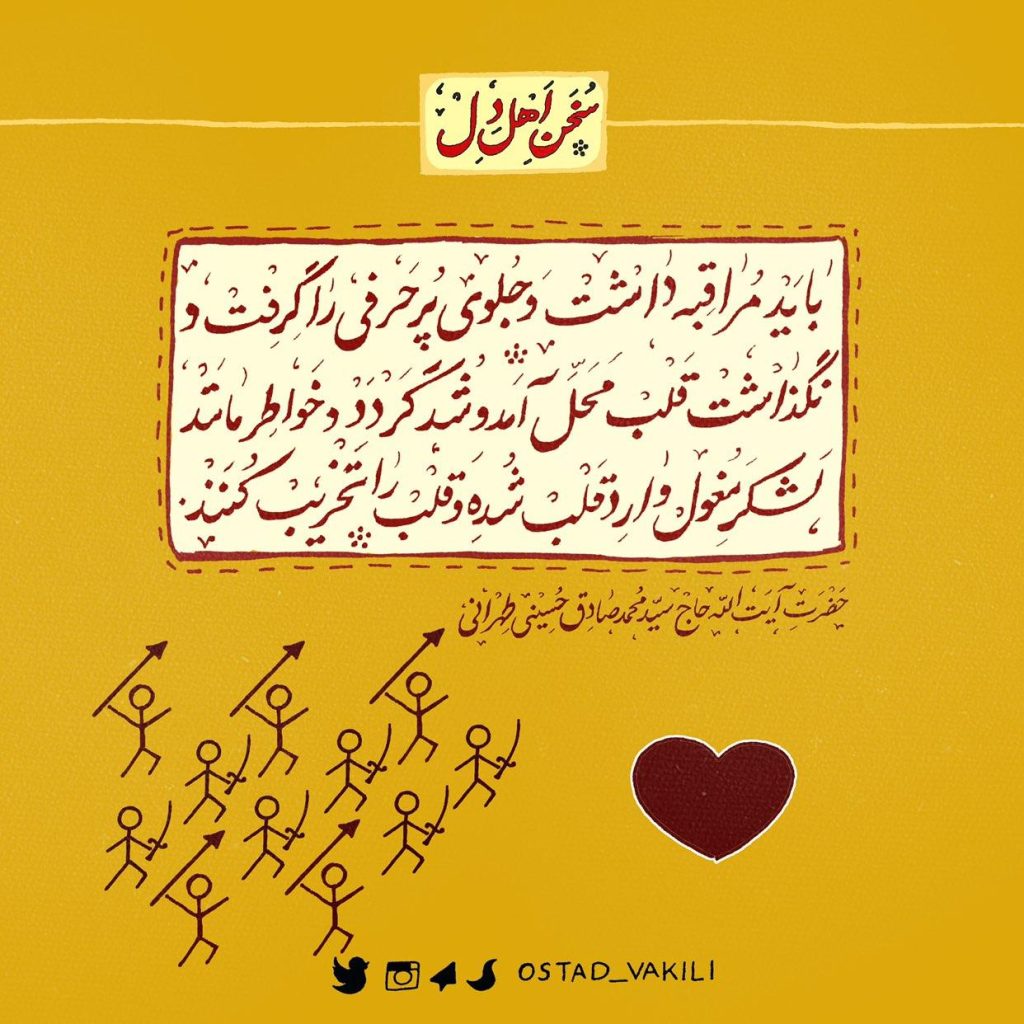 سُخَنِ اَهلِ دِل
بایَد مُراقِبه داشت وَ جُلوی پُرحَرفی را گِرِفت و
نگذاشت قَلب مَحَلِّ آمَد و شُد گَردَد و خَواطِر مانَند
لَشکَرِ مُغول وارِد قَلب شُده وَ قَلب را تَخریب کُنَند.
حَضرَتِ آیَت اللّه حاج سیّد مُحمد صادِق حُسِینی طِهرانی
OSTAD_VAKILI